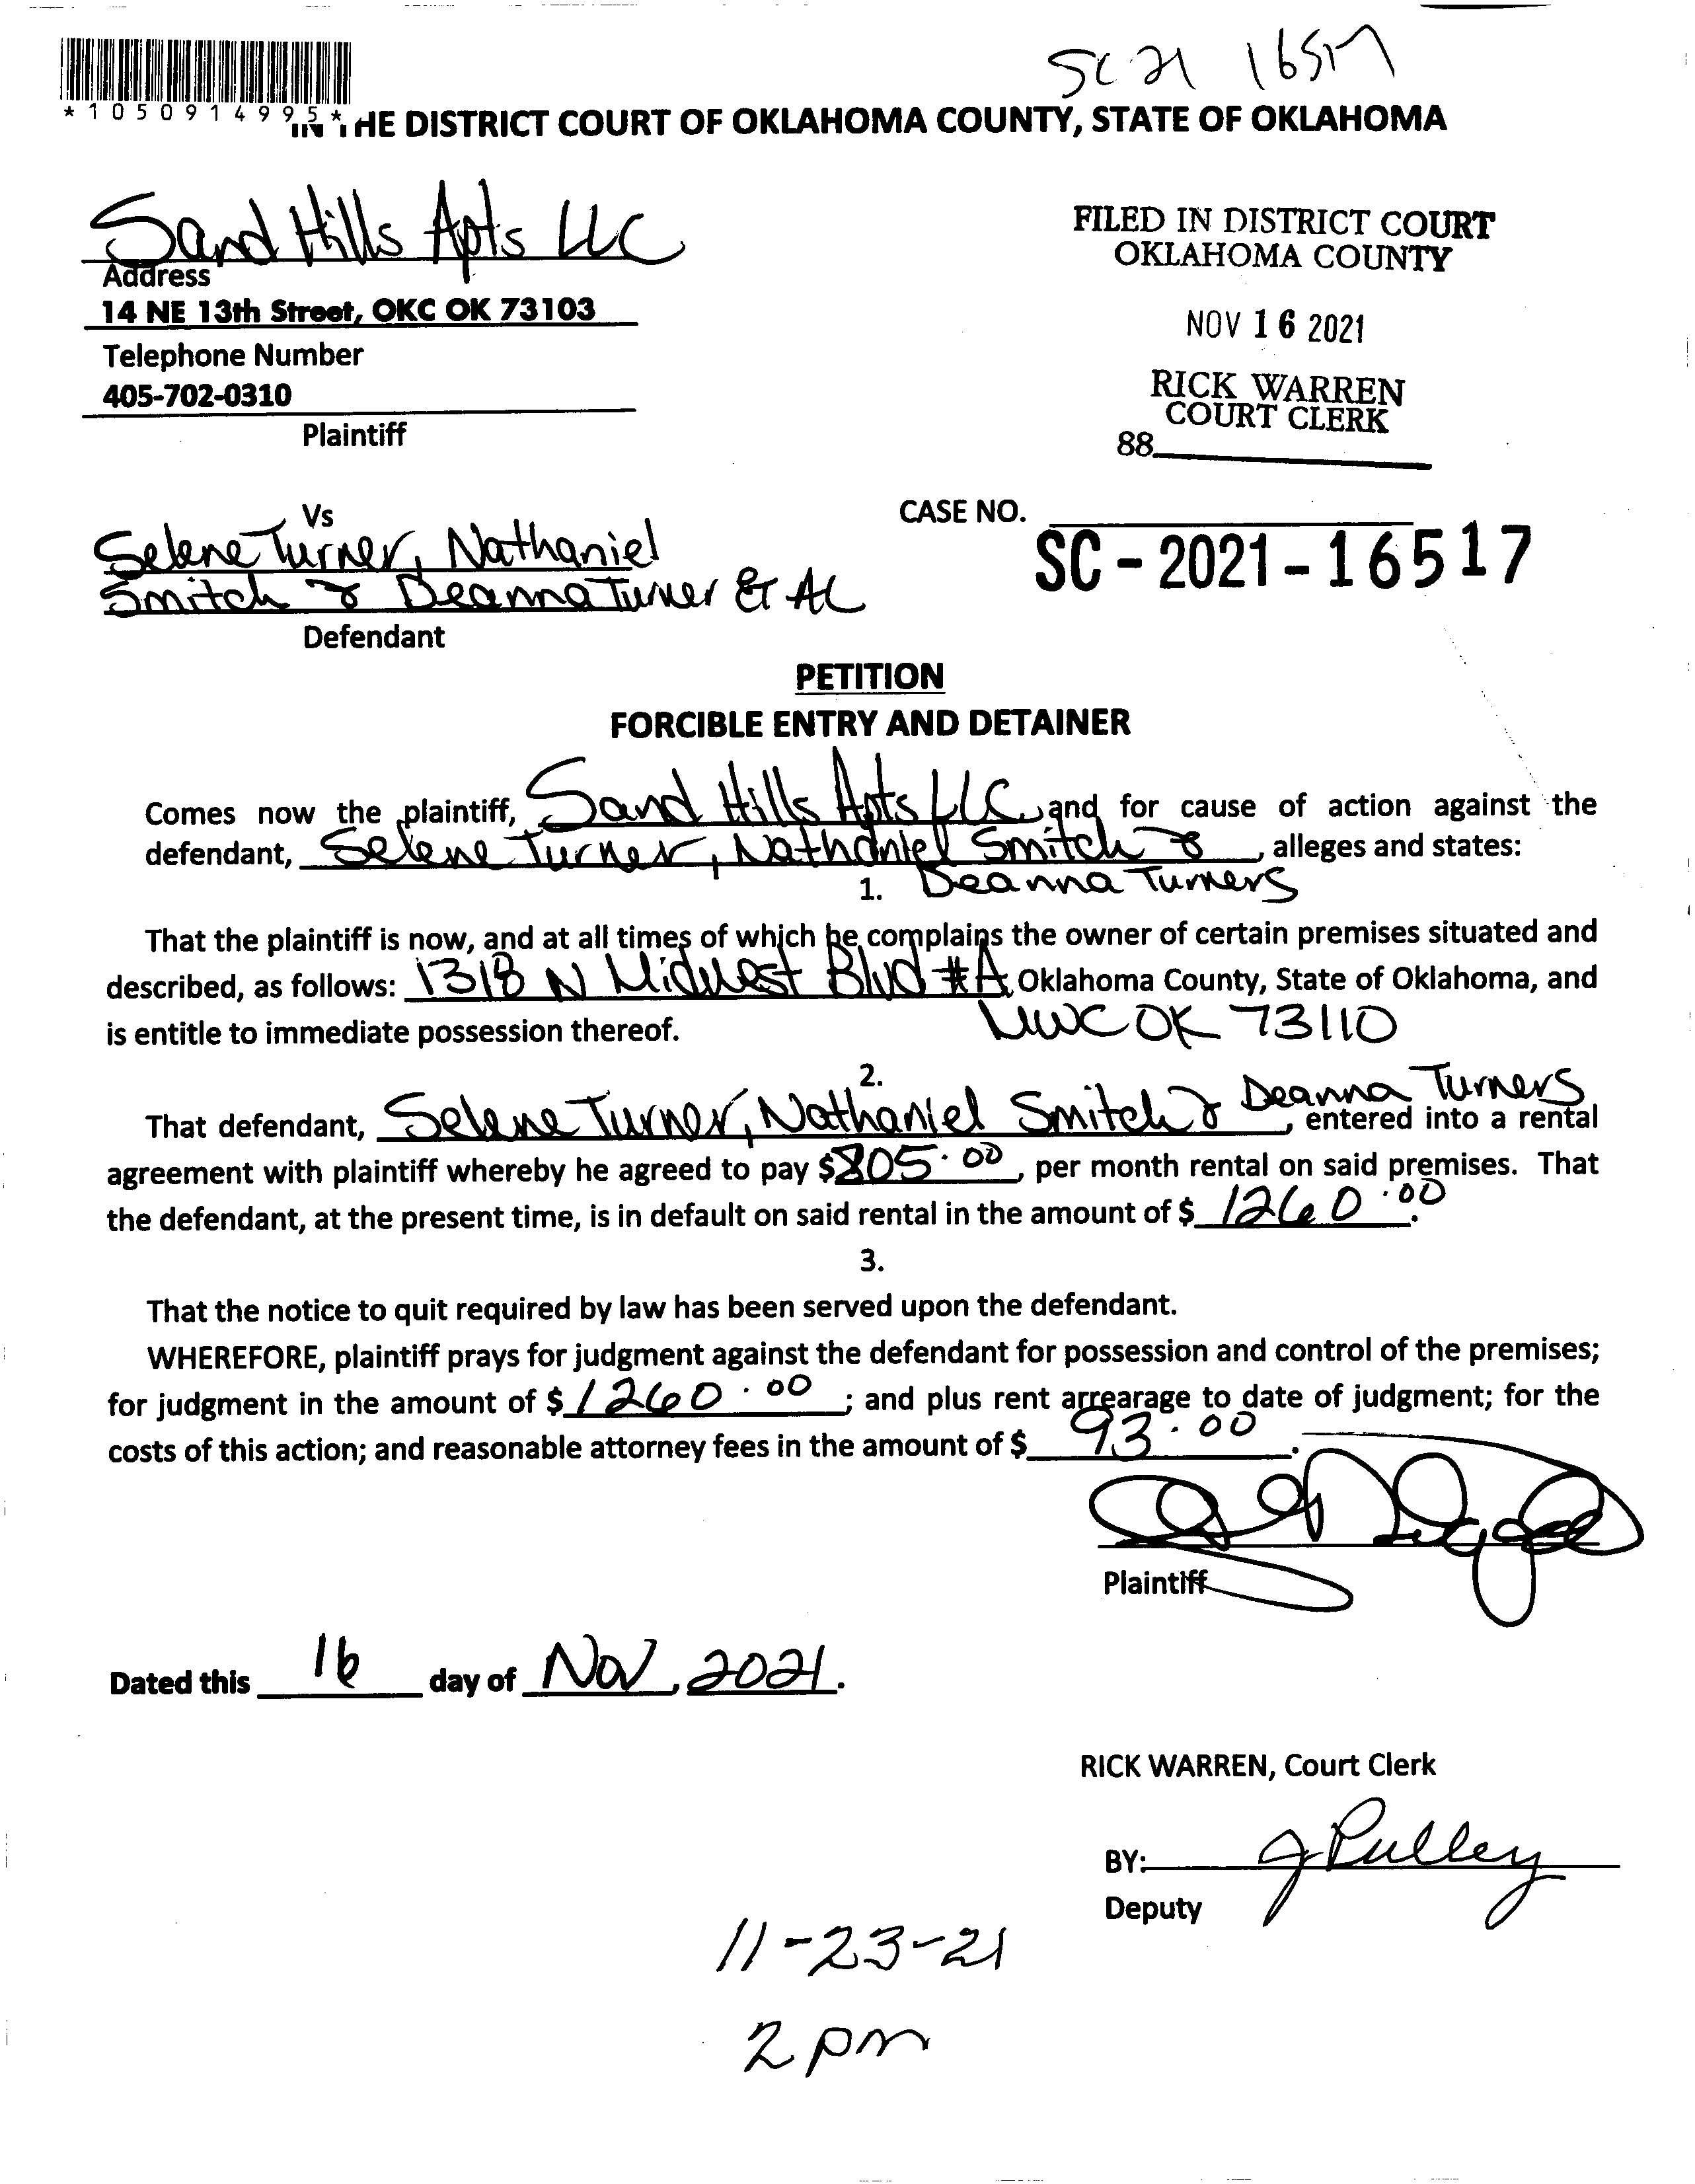 SC 21 16517
*1050914995*
IN THE DISTRICT COURT OF OKLAHOMA COUNTY, STATE OF OKLAHOMA
Sand Hills Apts LLC
Address
14 NE 13th Street, OKC OK 73103
Telephone Number
405-702-0310
Plaintiff
FILED IN DISTRICT COURT
OKLAHOMA COUNTY
NOV 16 2021
RICK WARREN
COURT CLERK
88
Vs
Selene Turner, Nathaniel
Smitch & Deanna Turner Et AL
Defendant
CASE NO.
SC-2021-16517
PETITION
FORCIBLE ENTRY AND DETAINER
Comes now the plaintiff, Sand Hills Apts LLC, and for cause of action against the
defendant, Selene Turner, Nathaniel Smitch &, alleges and states:
1. Deanna Turners
That the plaintiff is now, and at all times of which he complains the owner of certain premises situated and
described, as follows: 1318 N Midwest Blvd #A, Oklahoma County, State of Oklahoma, and
is entitle to immediate possession thereof. MWC OK 73110
2.
That defendant, Selene Turner, Nathaniel Smitch & Deanna Turners, entered into a rental
agreement with plaintiff whereby he agreed to pay $805.00, per month rental on said premises. That
the defendant, at the present time, is in default on said rental in the amount of $ 1260.00.
3.
That the notice to quit required by law has been served upon the defendant.
WHEREFORE, plaintiff prays for judgment against the defendant for possession and control of the premises;
for judgment in the amount of $ 1260.00; and plus rent arrearage to date of judgment; for the
costs of this action; and reasonable attorney fees in the amount of $ 93.00.
Plaintiff
Dated this 16 day of Nov, 2021.
RICK WARREN, Court Clerk
BY: J Pulley
Deputy
11-23-21
2 pm